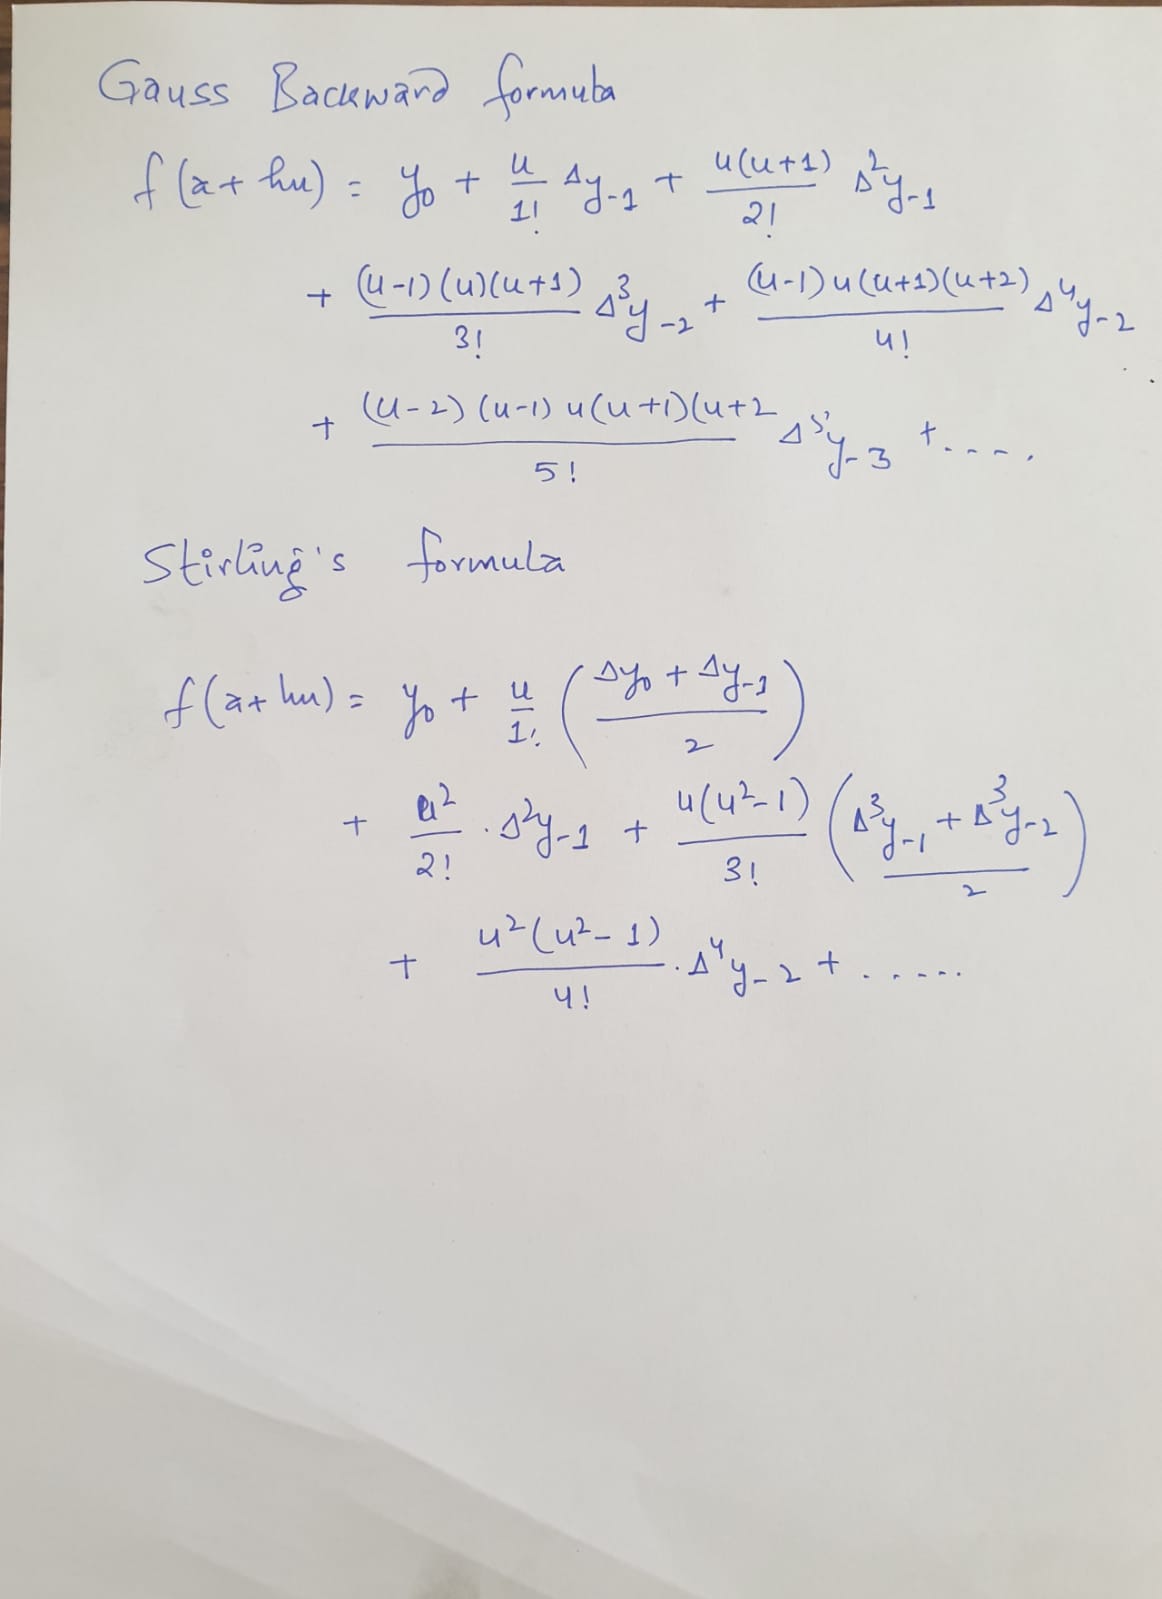 Gauss Backward formula
f(a+hu) = y₀ + u/1! Δy₋₁ + u(u+1)/2! Δ²y₋₁
+ (u-1)(u)(u+1)/3! Δ³y₋₂ + (u-1)u(u+1)(u+2)/4! Δ⁴y₋₂
+ (u-2)(u-1)u(u+1)(u+2/5! Δ⁵y₋₃ + ....
Stirling's formula
f(a+hu) = y₀ + u/1! ((Δy₀ + Δy₋₁)/2)
+ u²/2! · Δ²y₋₁ + u(u²-1)/3! ((Δ³y₋₁ + Δ³y₋₂)/2)
+ u²(u²-1)/4! · Δ⁴y₋₂ + ......